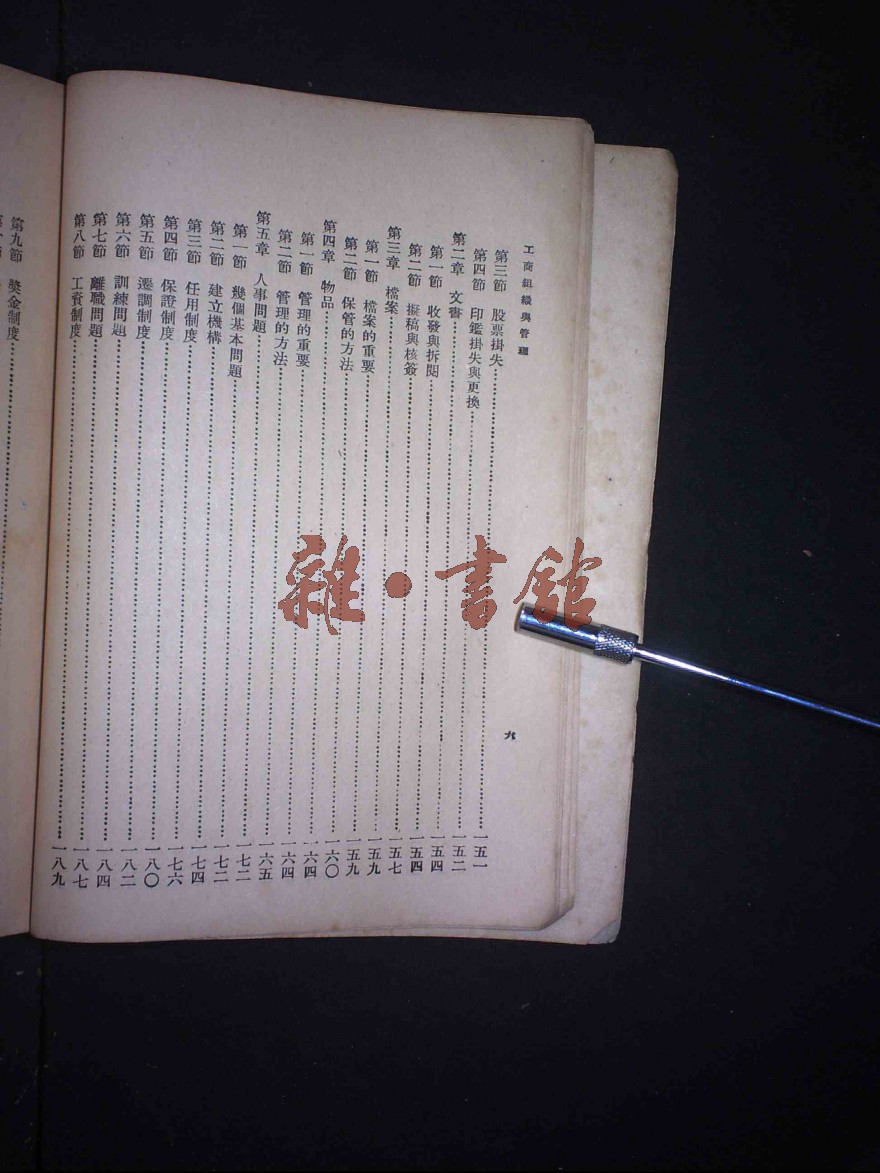 工商組織與管理
六
第三節 股票掛失……一五一
第四節 印鑑掛失與更換……一五二
第二章 文書……一五四
第一節 收發與拆閱……一五四
第二節 擬稿與核簽……一五七
第三章 檔案……一五九
第一節 檔案的重要……一五九
第二節 保管的方法……一六〇
第四章 物品……一六四
第一節 管理的重要……一六四
第二節 管理的方法……一六五
第五章 人事問題……一七二
第一節 幾個基本問題……一七二
第二節 建立機構……一七四
第三節 任用制度……一七六
第四節 保證制度……一八〇
第五節 遷調制度……一八二
第六節 訓練問題……一八四
第七節 離職問題……一八七
第八節 工資制度……一八九
第九節 獎金制度……
雜·書館